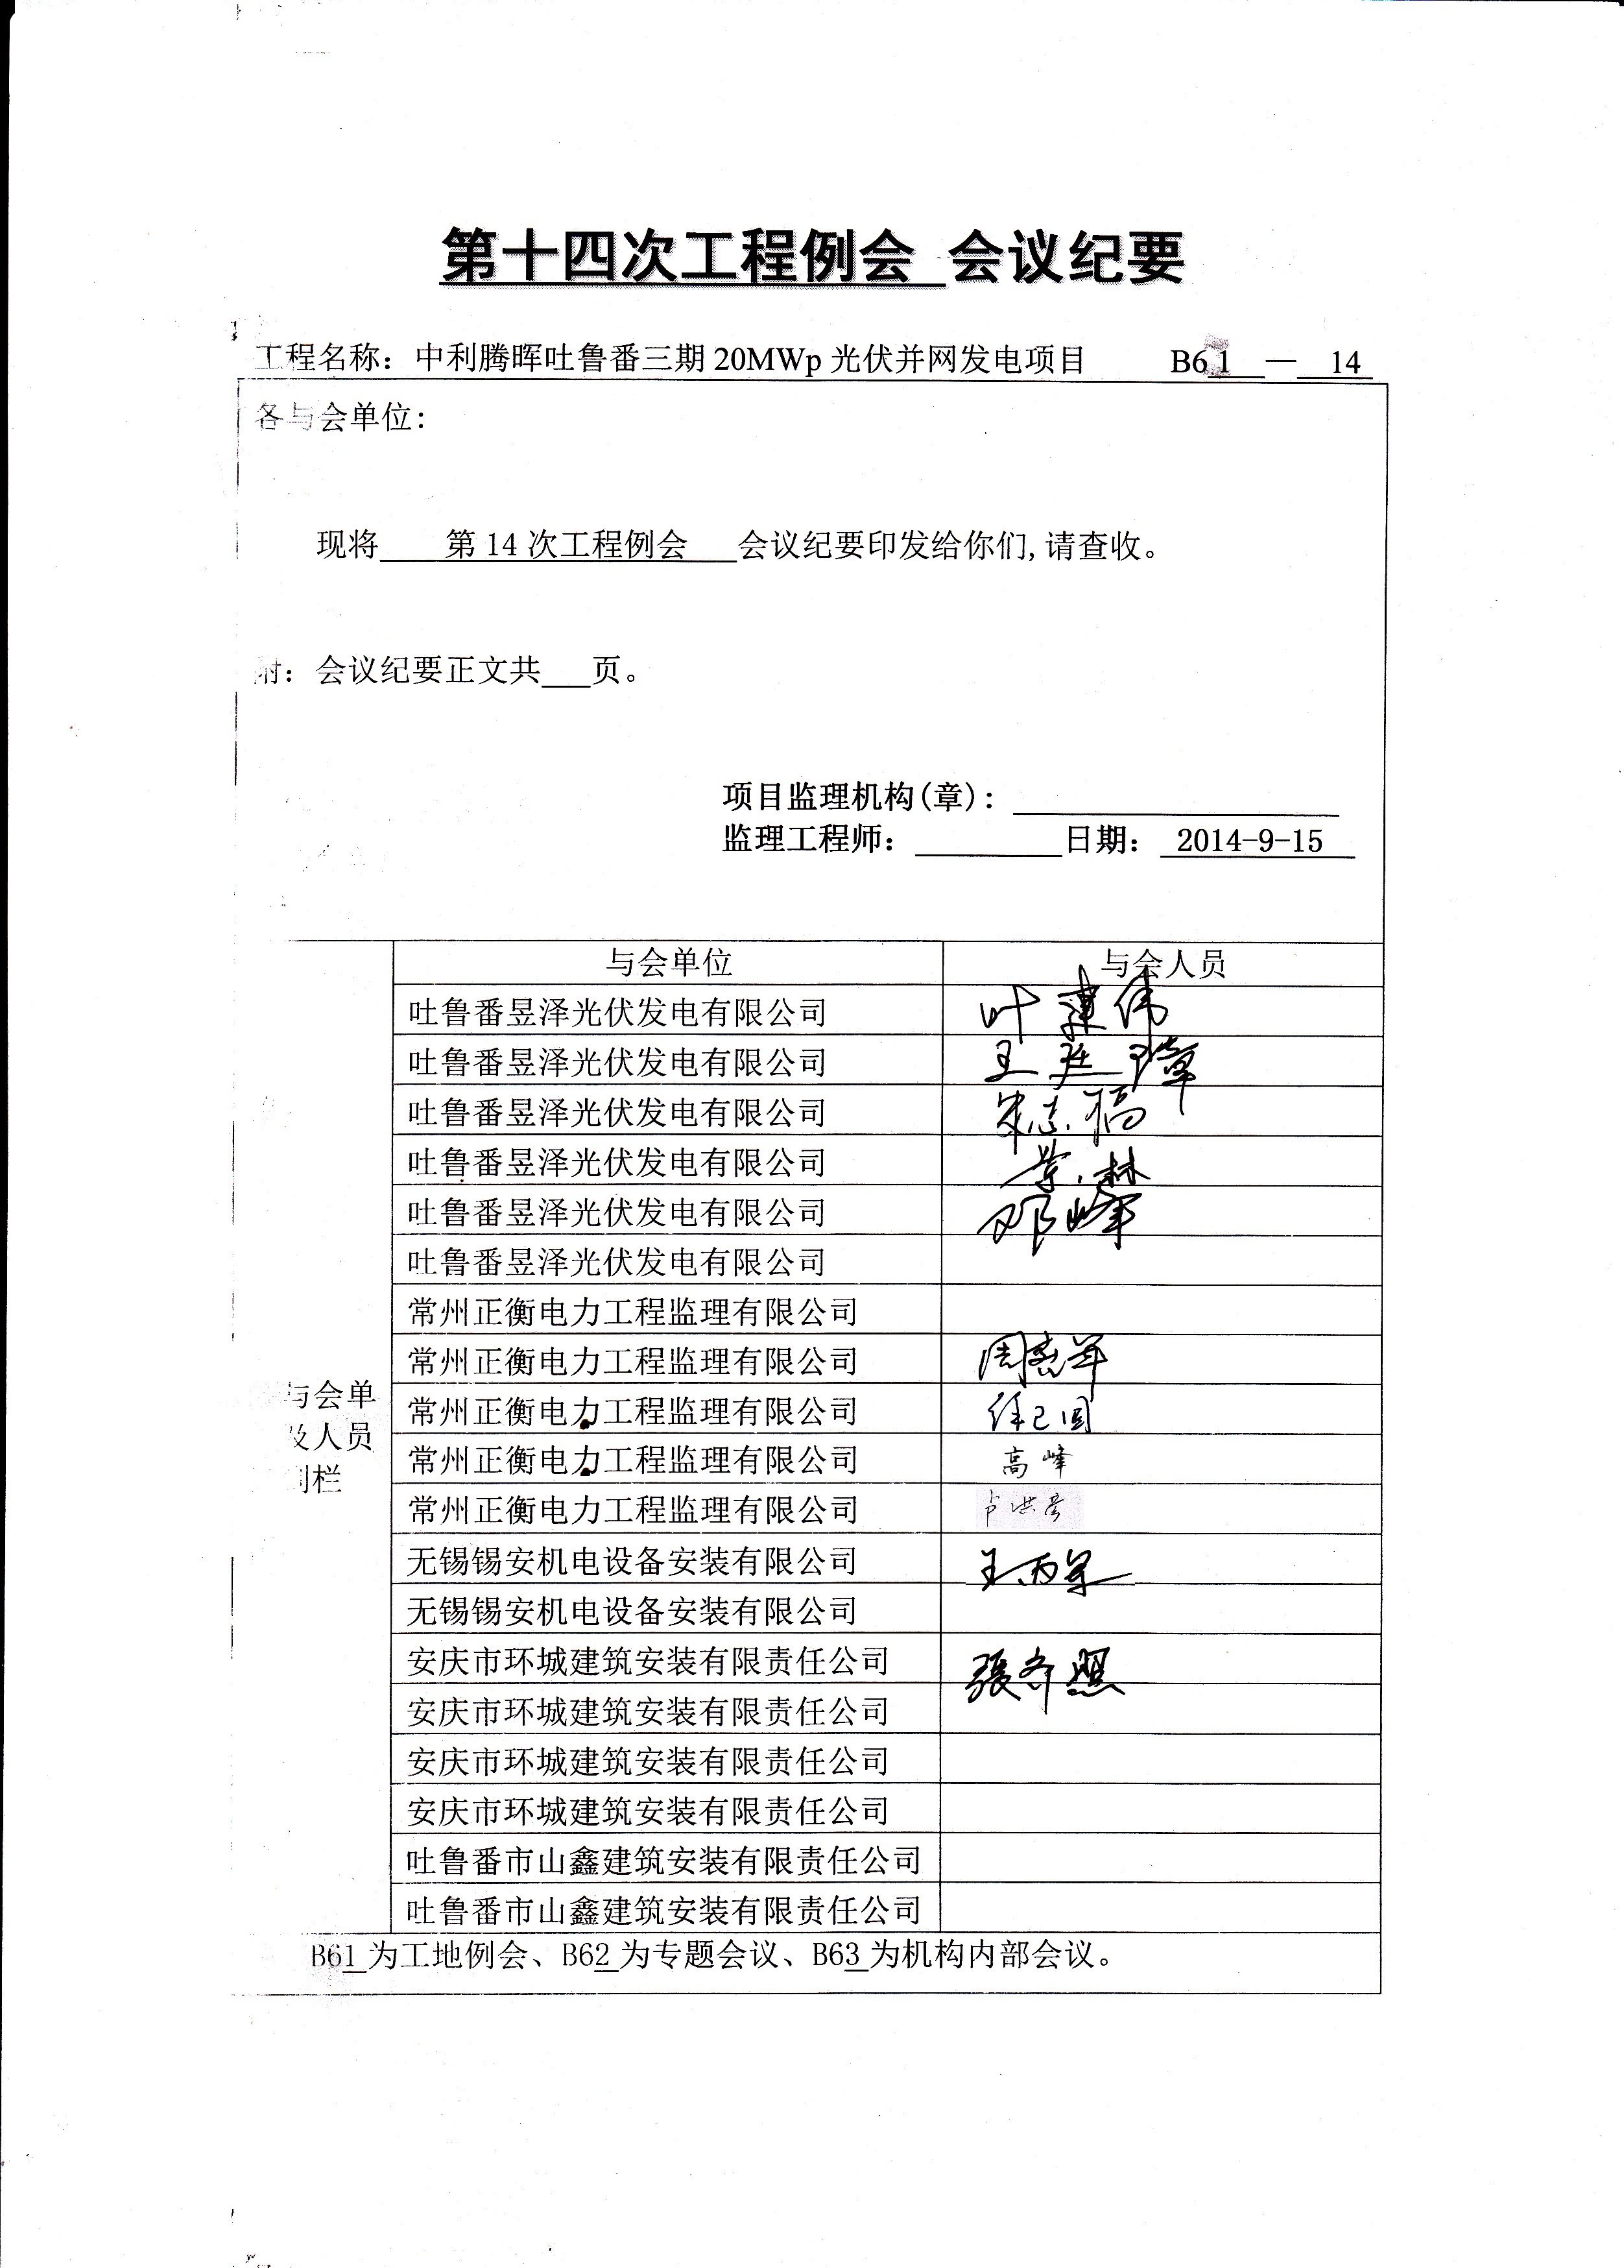 第十四次工程例会 会议纪要
工程名称：中利腾晖吐鲁番三期20MWp光伏并网发电项目 B61 — 14
各与会单位：
现将 第14次工程例会 会议纪要印发给你们,请查收。
附：会议纪要正文共___页。
项目监理机构(章)：
监理工程师： 日期： 2014-9-15
与会单位 与会人员
吐鲁番昱泽光伏发电有限公司 叶建伟
吐鲁番昱泽光伏发电有限公司 王廷璋
吐鲁番昱泽光伏发电有限公司
吐鲁番昱泽光伏发电有限公司
吐鲁番昱泽光伏发电有限公司 邓峰
吐鲁番昱泽光伏发电有限公司
常州正衡电力工程监理有限公司
常州正衡电力工程监理有限公司
常州正衡电力工程监理有限公司
常州正衡电力工程监理有限公司 高峰
常州正衡电力工程监理有限公司
无锡锡安机电设备安装有限公司
无锡锡安机电设备安装有限公司
安庆市环城建筑安装有限责任公司
安庆市环城建筑安装有限责任公司
安庆市环城建筑安装有限责任公司
安庆市环城建筑安装有限责任公司
吐鲁番市山鑫建筑安装有限责任公司
吐鲁番市山鑫建筑安装有限责任公司
与会单
及人员
栏
B61为工地例会、B62为专题会议、B63为机构内部会议。